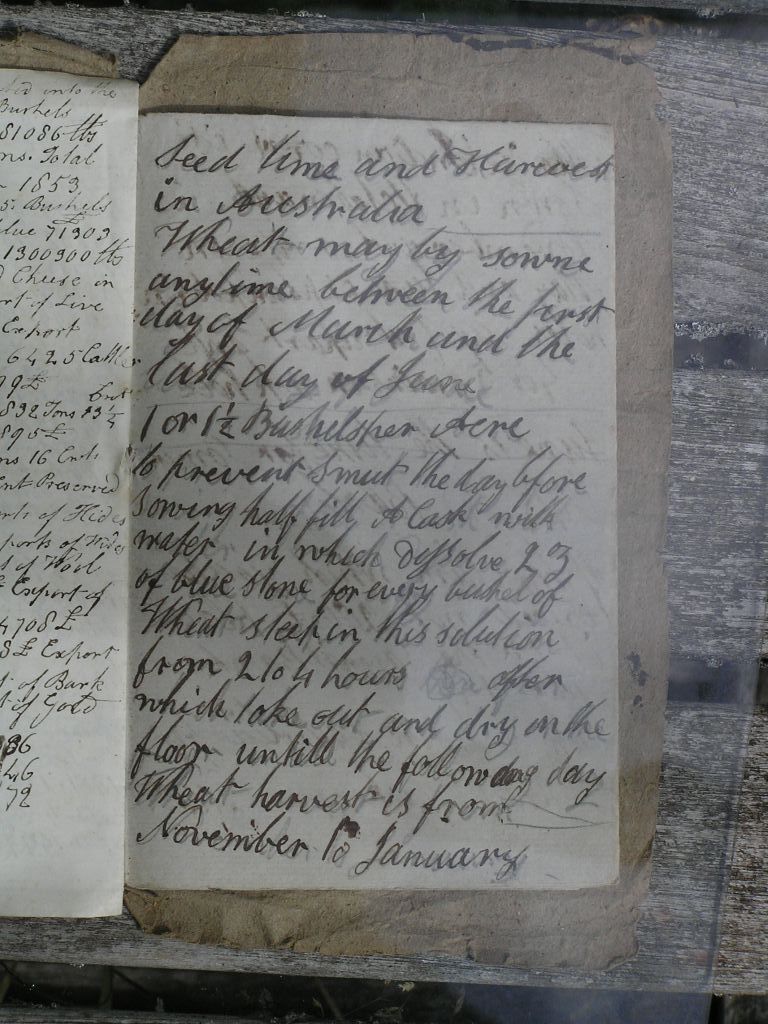 ted into the
Bushels
81086 lbs
ns. Total
1853
5. Bushels
lue 71303
1300300 lbs
d Cheese in
rt of Live
Export
6425 Cattle
79£
832 Tons 13¼
895£
ns 16 Cnts
ent Preserved
orts of Hides
xports of Hides
t of Wool
£ Export of
4708£
8£ Export
t of Bark
t of Gold
36
46
72
Seed time and Harvest
in Australia
Wheat may by sowne
anytime between the first
day of March and the
last day of June
1 or 1½ Bushels per Acre
to prevent Smut the day before
sowing half fill A Cask with
water in which Dissolve 2 oz
of blue stone for every bushel of
Wheat steep in this solution
from 2 to 4 hours after
which take out and dry on the
floor untill the following day
Wheat harvest is from
November to January